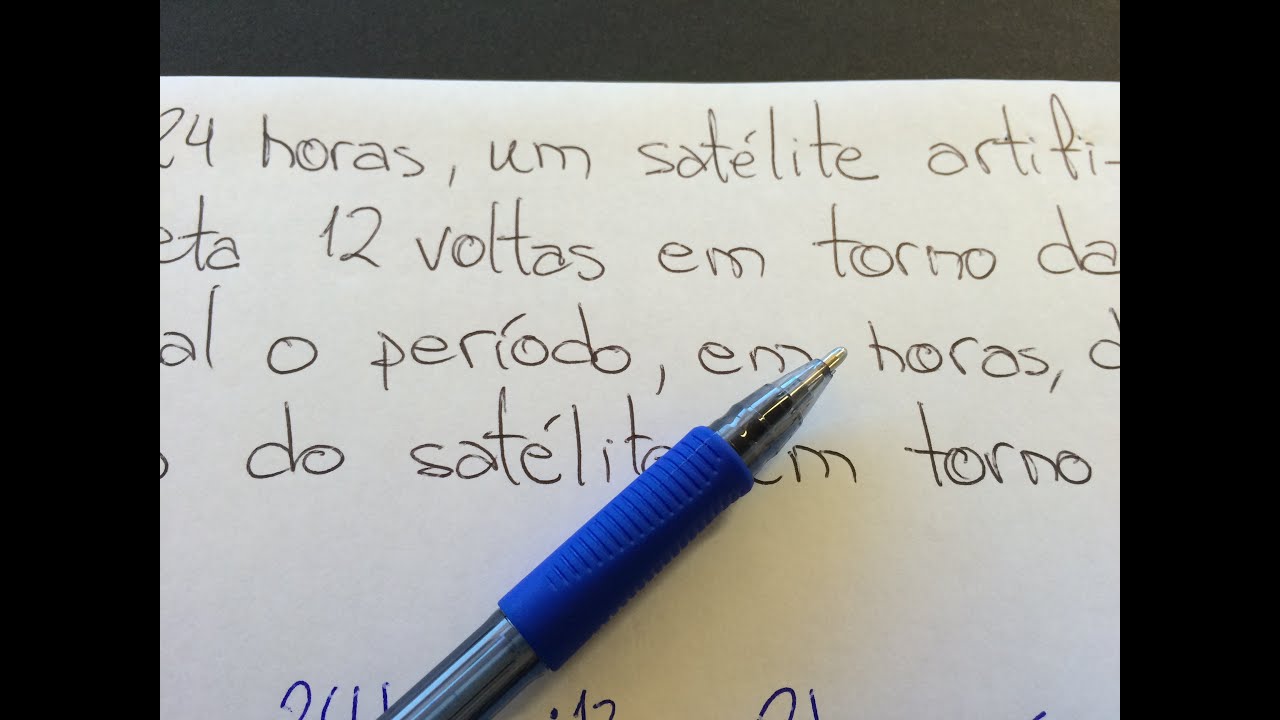 24 horas, um satélite artifi-
eta 12 voltas em torno da
al o período, em horas, d
do satélite em torno
24h :12 2h